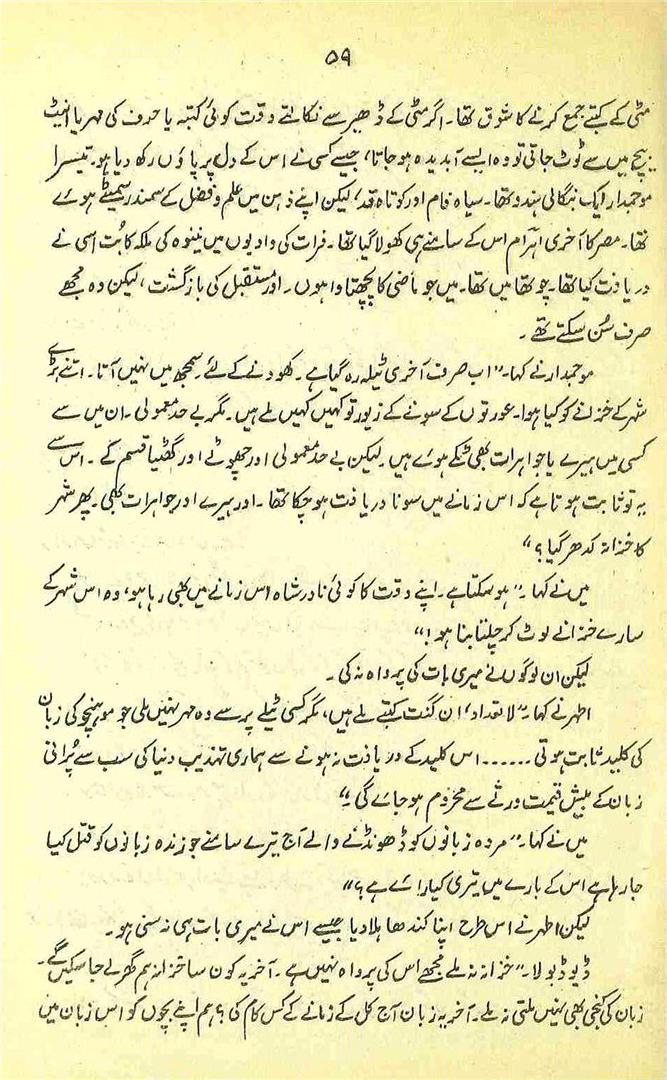 ۵۹
مٹی کے کتبے جمع کرنے کا شوق تھا۔ اگر مٹی کے ڈھیر سے نکالتے وقت کوئی کتبہ یا حروف کی مہر یا اینٹ
بیچ میں سے ٹوٹ جاتی تو وہ ایسے آبدیدہ ہو جاتا، جیسے کسی نے اس کے دل پر پاؤں رکھ دیا ہو۔ تیسرا
موجمدار ایک بنگالی ہندو تھا۔ سیاہ فام اور کوتاہ قد، لیکن اپنے ذہن میں علم و فضل کے سمندر سمیٹے ہوئے
تھا۔ مصر کا آخری اہرام اس کے سامنے ہی کھولا گیا تھا۔ فرات کی وادیوں میں نینوہ کی ملکہ کا بُت اسی نے
دریافت کیا تھا۔ چوتھا میں تھا۔ میں جو ماضی کا پچھتاوا ہوں۔ اور مستقبل کی بازگشت، لیکن وہ مجھے
صرف سُن سکتے تھے۔
موجمدار نے کہا۔ "اب صرف آخری ٹیلہ رہ گیا ہے۔ کھودنے کے لئے۔ سمجھ میں نہیں آتا۔ اتنے بڑے
شہر کے خزانے کو کیا ہوا۔ عورتوں کے سونے کے زیور تو کہیں کہیں ملے ہیں۔ مگر بے حد معمولی۔ ان میں سے
کسی میں ہیرے یا جواہرات بھی ٹنکے ہوئے ہیں۔ لیکن بے حد معمولی اور چھوٹے اور گھٹیا قسم کے۔ اس سے
یہ تو ثابت ہوتا ہے کہ اس زمانے میں سونا دریافت ہو چکا تھا۔ اور ہیرے اور جواہرات بھی۔ پھر شہر
کا خزانہ کدھر گیا؟"
میں نے کہا۔ "ہو سکتا ہے۔ اپنے وقت کا کوئی نادر شاہ اس زمانے میں بھی رہا ہو، وہ اس شہر کے
سارے خزانے لوٹ کر چلتا بنا ہو!"
لیکن ان لوگوں نے میری بات کی پرواہ نہ کی۔
اطہر نے کہا۔ "لا تعداد، ان گنت کتبے ملے ہیں، مگر کسی ٹیلے پر سے وہ مہر نہیں ملی جو موہنجو کی زبان
کی کلید ثابت ہوتی ...... اس کلید کے دریافت نہ ہونے سے ہماری تہذیب دنیا کی سب سے پُرانی
زبان کے بیش قیمت ورثے سے محروم ہو جائے گی۔"
میں نے کہا۔ "مردہ زبانوں کو ڈھونڈنے والے آج تیرے سامنے جو زندہ زبانوں کو قتل کیا
جا رہا ہے اس کے بارے میں تیری کیا رائے ہے؟"
لیکن اطہر نے اس طرح اپنا کندھا ہلا دیا جیسے اس نے میری بات ہی نہ سنی ہو۔
ڈیوڈ بولا۔ "خزانہ نہ ملے مجھے اس کی پرواہ نہیں ہے۔ آخر یہ کون سا خزانہ ہم گھر لے جا سکیں گے۔
زبان کی کنجی بھی نہیں ملتی نہ ملے۔ آخر یہ زبان آج کل کے زمانے کے کس کام کی؟ ہم اپنے بچوں کو اس زبان میں